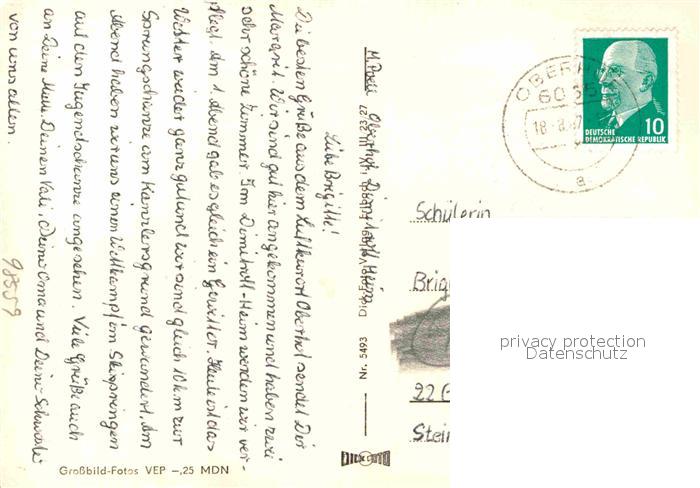 Liebe Brigitte!
Die besten Grüße aus dem Luftkurort Oberhof sendet Dir
Margrit. Wir sind gut hier angekommen und haben zwei
sehr schöne Zimmer. Im Dimitroff-Heim werden wir ver-
pflegt. Am 1. Abend gab es gleich ein Gewitter. Heute ist das
Wetter wieder ganz gut und wir sind gleich 10 km zur
Sprungschanze am Kanzlersgrund gewandert. Am
Abend haben wir uns einen Wettkampf im Skispringen
auf der Jugendschanze angesehen. Viele Grüße auch
an Deine Mutti, Deinen Vati, Deine Oma und Deine Schwester
von uns allen.
98559
Großbild-Fotos VEP -,25 MDN
Oberhof, Dimitroff-Heim
Nr. 5493
OBERH
6055
a
DEUTSCHE
DEMOKRATISCHE REPUBLIK
10
Schülerin
Brigi
22
Stein
privacy protection
Datenschutz